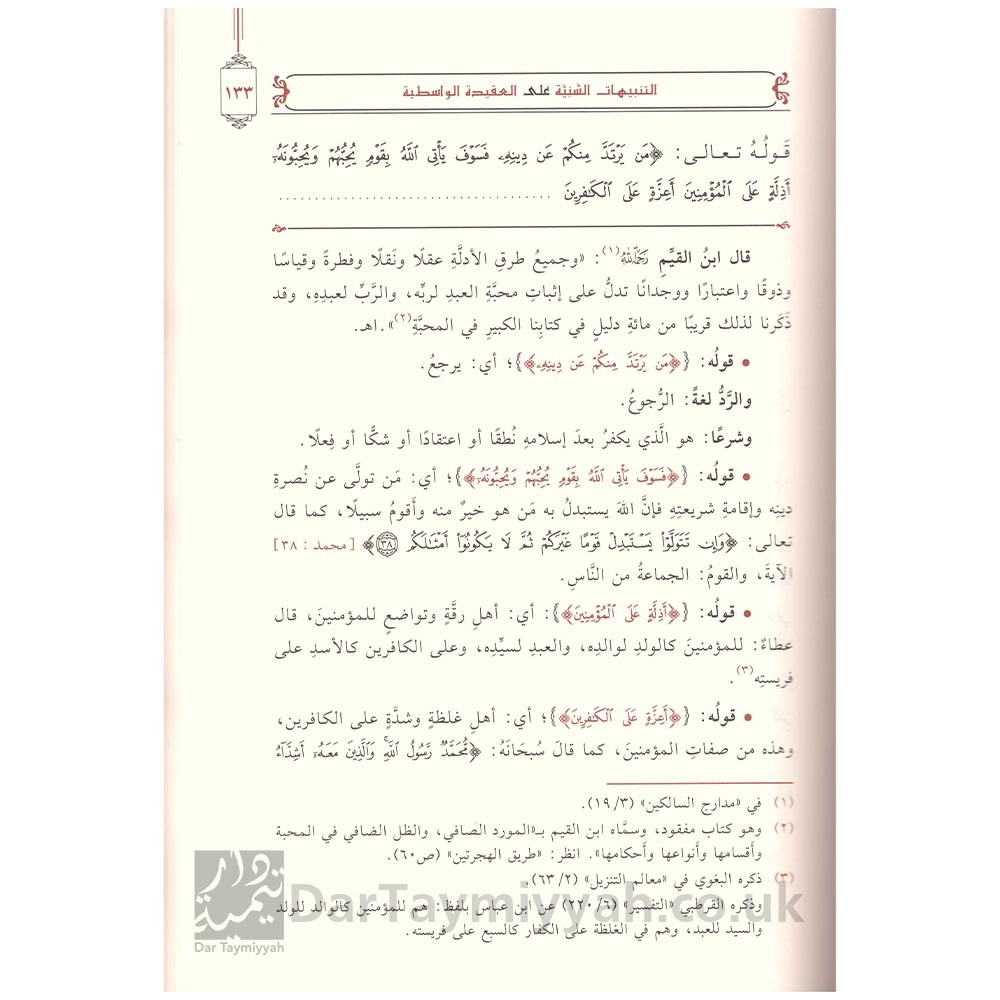 ١٣٣
التنبيهات السنية على العقيدة الواسطية
قَولُهُ تعالى: ﴿مَن يَرْتَدَّ مِنكُمْ عَن دِينِهِۦ فَسَوْفَ يَأْتِى ٱللَّهُ بِقَوْمٍ يُحِبُّهُمْ وَيُحِبُّونَهُۥٓ
أَذِلَّةٍ عَلَى ٱلْمُؤْمِنِينَ أَعِزَّةٍ عَلَى ٱلْكَٰفِرِينَ ......................................
قال ابنُ القيِّمِ رَحِمَهُ ٱللَّهُ(١): «وجميعُ طرقِ الأدلَّةِ عقلًا ونَقلًا وفطرةً وقياسًا
وذوقًا واعتبارًا ووجدانًا تدلُّ على إثباتِ محبَّةِ العبدِ لربِّه، والرَّبِّ لعبدِهِ، وقد
ذَكَرنا لذلك قريبًا من مائةِ دليلٍ في كتابِنا الكبيرِ في المحبَّةِ(٢)».اهـ.
• قولُه: {﴿مَن يَرْتَدَّ مِنكُمْ عَن دِينِهِۦ﴾}؛ أي: يرجعُ.
والرَّدُّ لغةً: الرُّجوعُ.
وشرعًا: هو الَّذي يكفرُ بعدَ إسلامهِ نُطقًا أو اعتقادًا أو شكًّا أو فِعلًا.
• قولُه: {﴿فَسَوْفَ يَأْتِى ٱللَّهُ بِقَوْمٍ يُحِبُّهُمْ وَيُحِبُّونَهُۥٓ﴾}؛ أي: مَن تولَّى عن نُصرةِ
دينِه وإقامةِ شريعتِهِ فإنَّ اللهَ يستبدلُ به مَن هو خيرٌ منه وأَقومُ سبيلًا، كما قال
تعالى: ﴿وَإِن تَتَوَلَّوْا۟ يَسْتَبْدِلْ قَوْمًا غَيْرَكُمْ ثُمَّ لَا يَكُونُوٓا۟ أَمْثَٰلَكُم ٣٨﴾ [محمد: ٣٨]
الآيةَ، والقومُ: الجماعةُ من النَّاسِ.
• قولُه: {﴿أَذِلَّةٍ عَلَى ٱلْمُؤْمِنِينَ﴾}: أي: أهلِ رقَّةٍ وتواضعٍ للمؤمنينَ، قال
عطاءٌ: للمؤمنينَ كالولدِ لوالدِه، والعبدِ لسيِّدِه، وعلى الكافرين كالأسدِ على
فريستِه(٣).
• قولُه: {﴿أَعِزَّةٍ عَلَى ٱلْكَٰفِرِينَ﴾}؛ أي: أهلِ غلظةٍ وشدَّةٍ على الكافرين،
وهذه من صفاتِ المؤمنينَ، كما قالَ سُبحَانَهُ: ﴿مُّحَمَّدٌ رَّسُولُ ٱللَّهِ ۚ وَٱلَّذِينَ مَعَهُۥٓ أَشِدَّآءُ
(١) في «مدارج السالكين» (١٩/٣).
(٢) وهو كتاب مفقود، وسمَّاه ابن القيم بـ«المورد الصَّافي، والظل الضافي في المحبة
وأقسامها وأنواعها وأحكامها». انظر: «طريق الهجرتين» (ص٦٠).
(٣) ذكره البغوي في «معالم التنزيل» (٦٣/٢).
وذكره القرطبي «التفسير» (٢٢٠/٦) عن ابن عباس بلفظ: هم للمؤمنين كالوالد للولد
والسيد للعبد، وهم في الغلظة على الكفار كالسبع على فريسته.
دار تيمية
Dar Taymiyyah
DarTaymiyyah.co.uk